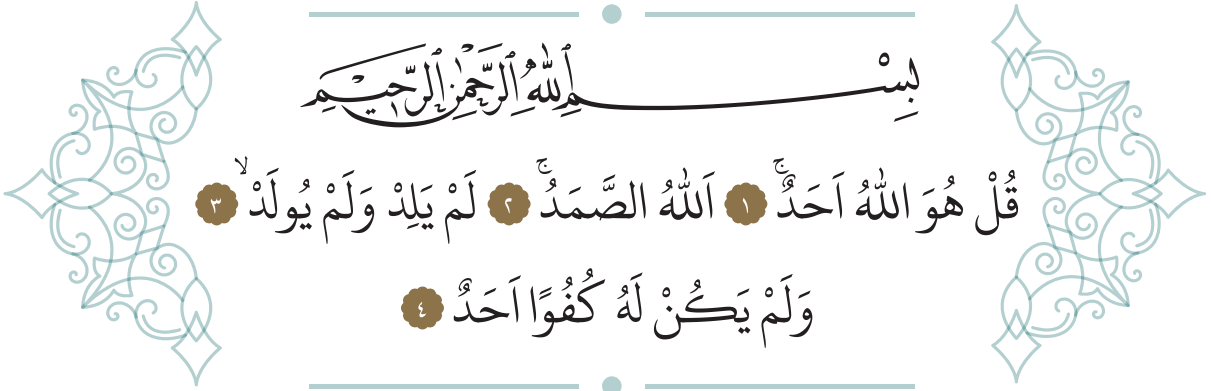 بِسْمِ اللّٰهِ الرَّحْمٰنِ الرَّحِيمِ
قُلْ هُوَ اللّٰهُ اَحَدٌۚ ١ اَللّٰهُ الصَّمَدُۚ ٢ لَمْ يَلِدْ وَلَمْ يُولَدْۙ ٣
وَلَمْ يَكُنْ لَهُ كُفُوًا اَحَدٌ ٤